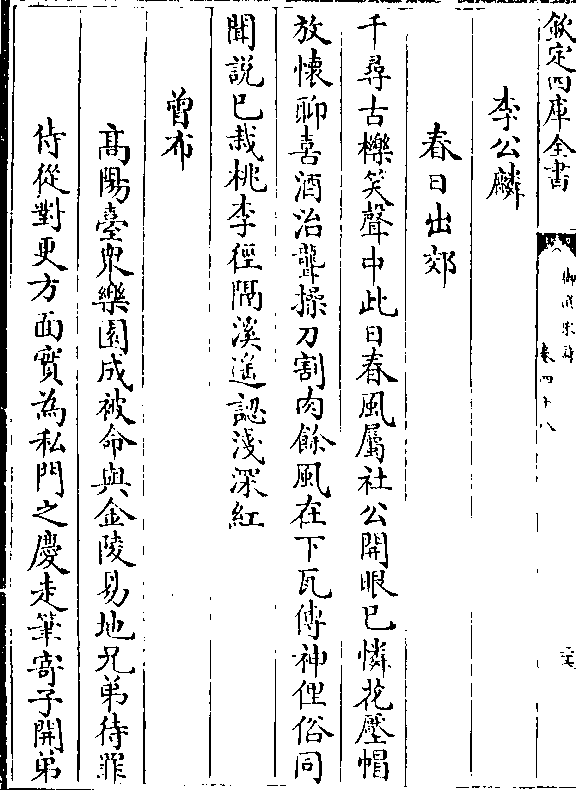 欽定四庫全書
御選宋詩 卷四十八
李公麟
春日出郊
千尋古櫟笑聲中此日春風屬社公開眼已憐花壓帽
放懷聊喜酒治聾操刀割肉餘風在下瓦傳神俚俗同
聞說已栽桃李徑隔溪遙認淺深紅
曾布
高陽臺衆樂園成被命與金陵易地兄弟待罪
侍從對更方面實為私門之慶走筆寄子開弟